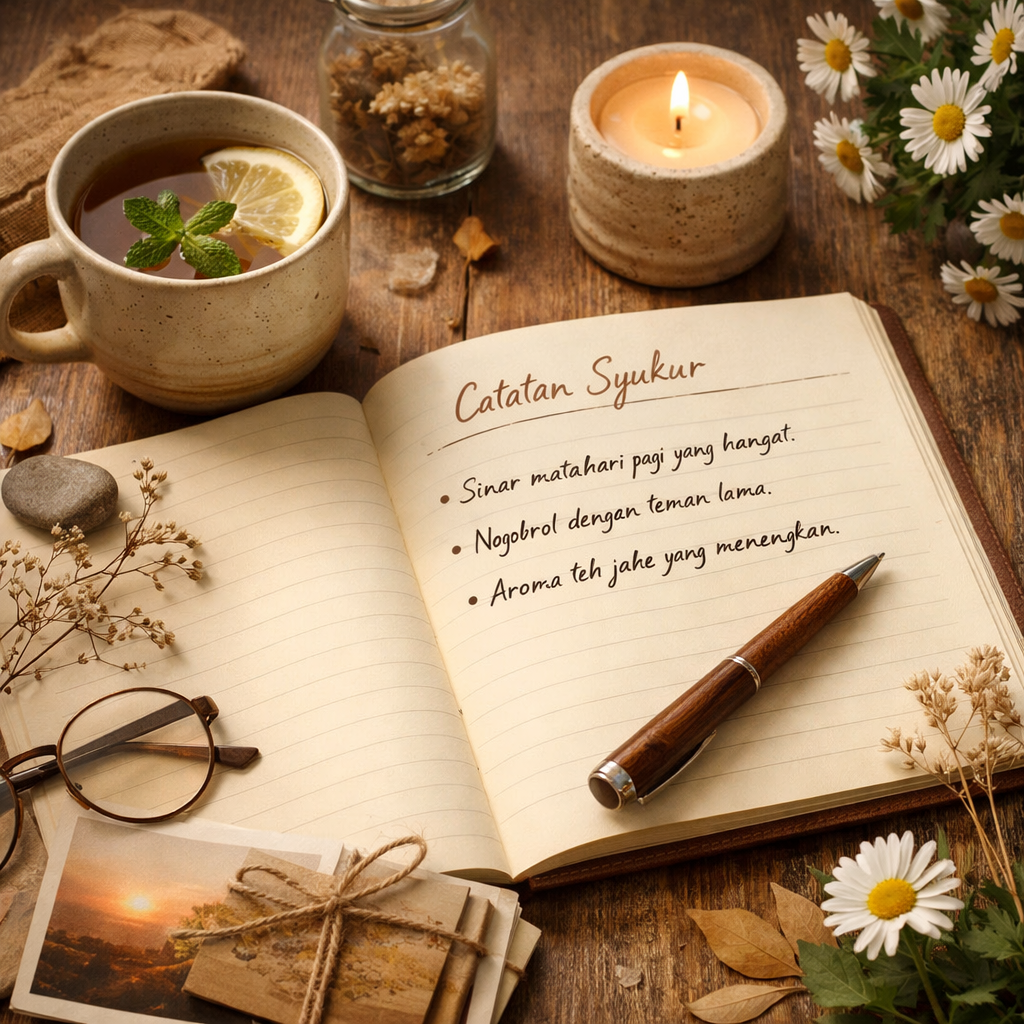 Catatan Syukur
• Sinar matahari pagi yang hangat.
• Nogobrol dengan teman lama.
• Aroma teh jahe yang menengkan.